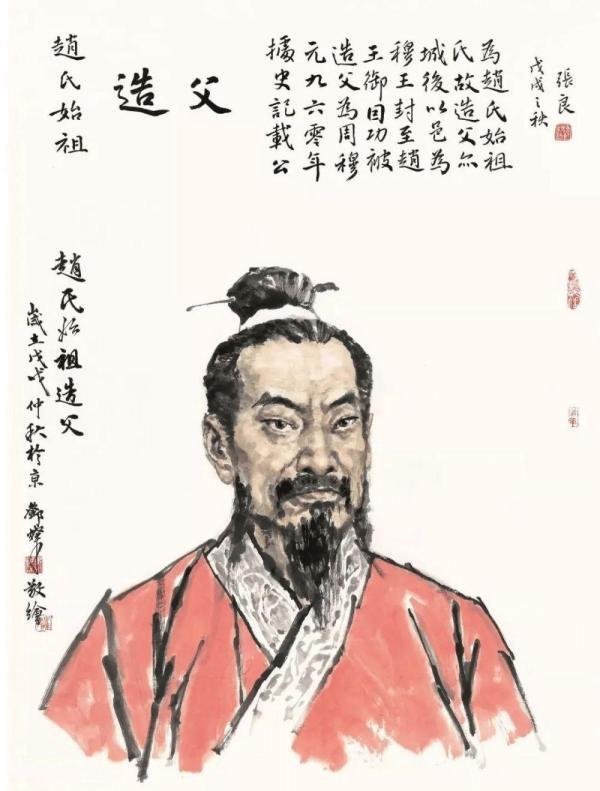 趙氏始祖
造父
據史記載公
元九六零年
造父為周穆
王御因功被
穆王封至趙
城後以邑為
氏故造父尔
為趙氏始祖
戊戌之秋
張良
趙氏始祖造父
歲在戊戌仲秋於京 敬繪